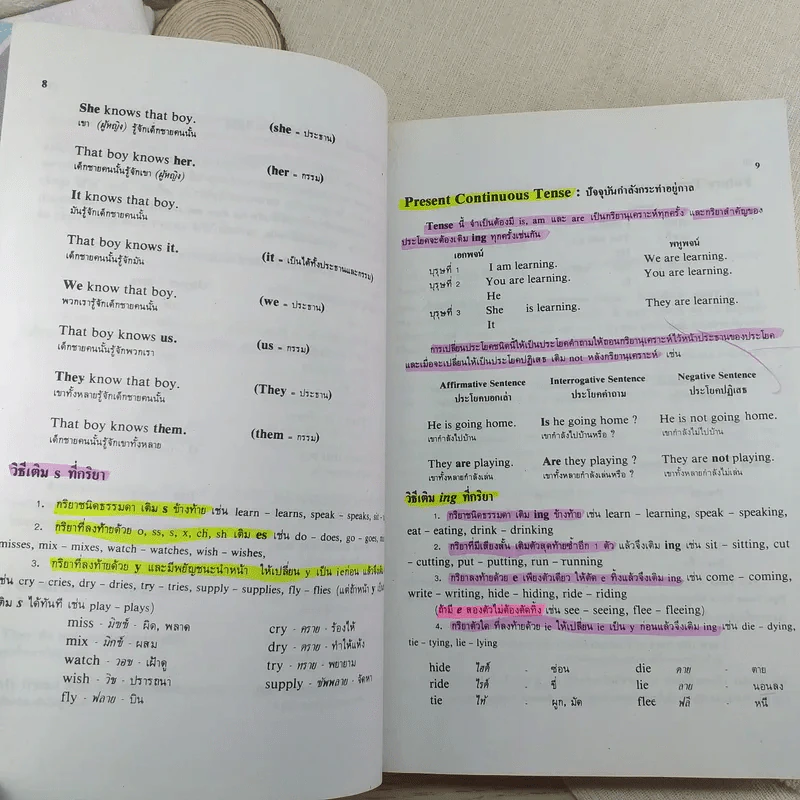 8
She knows that boy. (she - ประธาน)
เขา (ผู้หญิง) รู้จักเด็กชายคนนั้น
That boy knows her. (her - กรรม)
เด็กชายคนนั้นรู้จักเขา (ผู้หญิง)
It knows that boy.
มันรู้จักเด็กชายคนนั้น
That boy knows it. (it - เป็นได้ทั้งประธานและกรรม)
เด็กชายคนนั้นรู้จักมัน
We know that boy. (we - ประธาน)
พวกเรารู้จักเด็กชายคนนั้น
That boy knows us. (us - กรรม)
เด็กชายคนนั้นรู้จักพวกเรา
They know that boy. (They - ประธาน)
เขาทั้งหลายรู้จักเด็กชายคนนั้น
That boy knows them. (them - กรรม)
เด็กชายคนนั้นรู้จักเขาทั้งหลาย
วิธีเติม s ที่กริยา
1. กริยาชนิดธรรมดา เติม s ข้างท้าย เช่น learn - learns, speak - speaks,
2. กริยาที่ลงท้ายด้วย o, ss, s, x, ch, sh เติม es เช่น do - does, go - goes,
misses, mix - mixes, watch - watches, wish - wishes,
3. กริยาที่ลงท้ายด้วย y และมีพยัญชนะนำหน้า ให้เปลี่ยน y เป็น ie ก่อน
เช่น cry - cries, dry - dries, try - tries, supply - supplies, fly - flies (แต่ถ้าหน้า y
s ได้ทันที เช่น play - plays)
miss - มิซซ์ - ผิด, พลาด cry - คราย - ร้องไห้
mix - มิกซ์ - ผสม dry - ดราย - ทำให้แห้ง
watch - วอช - เฝ้าดู try - ทราย - พยายาม
wish - วิช - ปรารถนา supply - ซัพพลาย - จัดหา
fly - ฟลาย - บิน
9
Present Continuous Tense : ปัจจุบันกำลังกระทำอยู่กาล
Tense นี้ จำเป็นต้องมี is, am และ are เป็นกริยานุเคราะห์ทุกครั้ง และกริยาสำคัญของ
ประโยคจะต้องเติม ing ทุกครั้งเช่นกัน
เอกพจน์ พหูพจน์
บุรุษที่ 1 I am learning. We are learning.
บุรุษที่ 2 You are learning. You are learning.
He
บุรุษที่ 3 She is learning. They are learning.
It
การเปลี่ยนประโยคชนิดนี้ให้เป็นประโยคคำถามให้ถอนกริยานุเคราะห์ไว้หน้าประธานของประโยค
และเมื่อจะเปลี่ยนให้เป็นประโยคปฏิเสธ เติม not หลังกริยานุเคราะห์ เช่น
Affirmative Sentence Interrogative Sentence Negative Sentence
ประโยคบอกเล่า ประโยคคำถาม ประโยคปฏิเสธ
He is going home. Is he going home ? He is not going home.
เขากำลังไปบ้าน เขากำลังไปบ้านหรือ ? เขากำลังไม่ไปบ้าน
They are playing. Are they playing ? They are not playing.
เขาทั้งหลายกำลังเล่น เขาทั้งหลายกำลังเล่นหรือ ? เขาทั้งหลายกำลังไม่เล่น
วิธีเติม ing ที่กริยา
1. กริยาชนิดธรรมดา เติม ing ข้างท้าย เช่น learn - learning, speak - speaking,
eat - eating, drink - drinking
2. กริยาที่มีเสียงสั้น เติมตัวสุดท้ายซ้ำอีก 1 ตัว แล้วจึงเติม ing เช่น sit - sitting, cut
- cutting, put - putting, run - running
3. กริยาลงท้ายด้วย e เพียงตัวเดียว ให้ตัด e ทิ้งแล้วจึงเติม ing เช่น come - coming,
write - writing, hide - hiding, ride - riding
(ถ้ามี e สองตัวไม่ต้องตัดทิ้ง เช่น see - seeing, flee - fleeing)
4. กริยาตัวใด ที่ลงท้ายด้วย ie ให้เปลี่ยน ie เป็น y ก่อนแล้วจึงเติม ing เช่น die - dying,
tie - tying, lie - lying
hide ไฮด์ - ซ่อน die ดาย - ตาย
ride ไรด์ - ขี่ lie ลาย - นอนลง
tie ไท้ - ผูก, มัด flee ฟลี - หนี